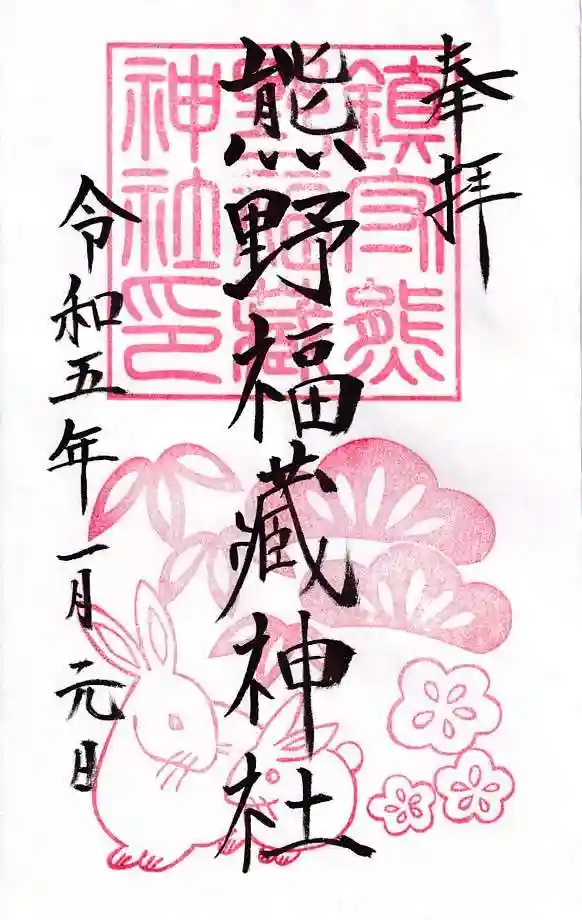 奉拝
熊野福藏神社
令和五年一月元日
鎮守熊
野福藏
神社印